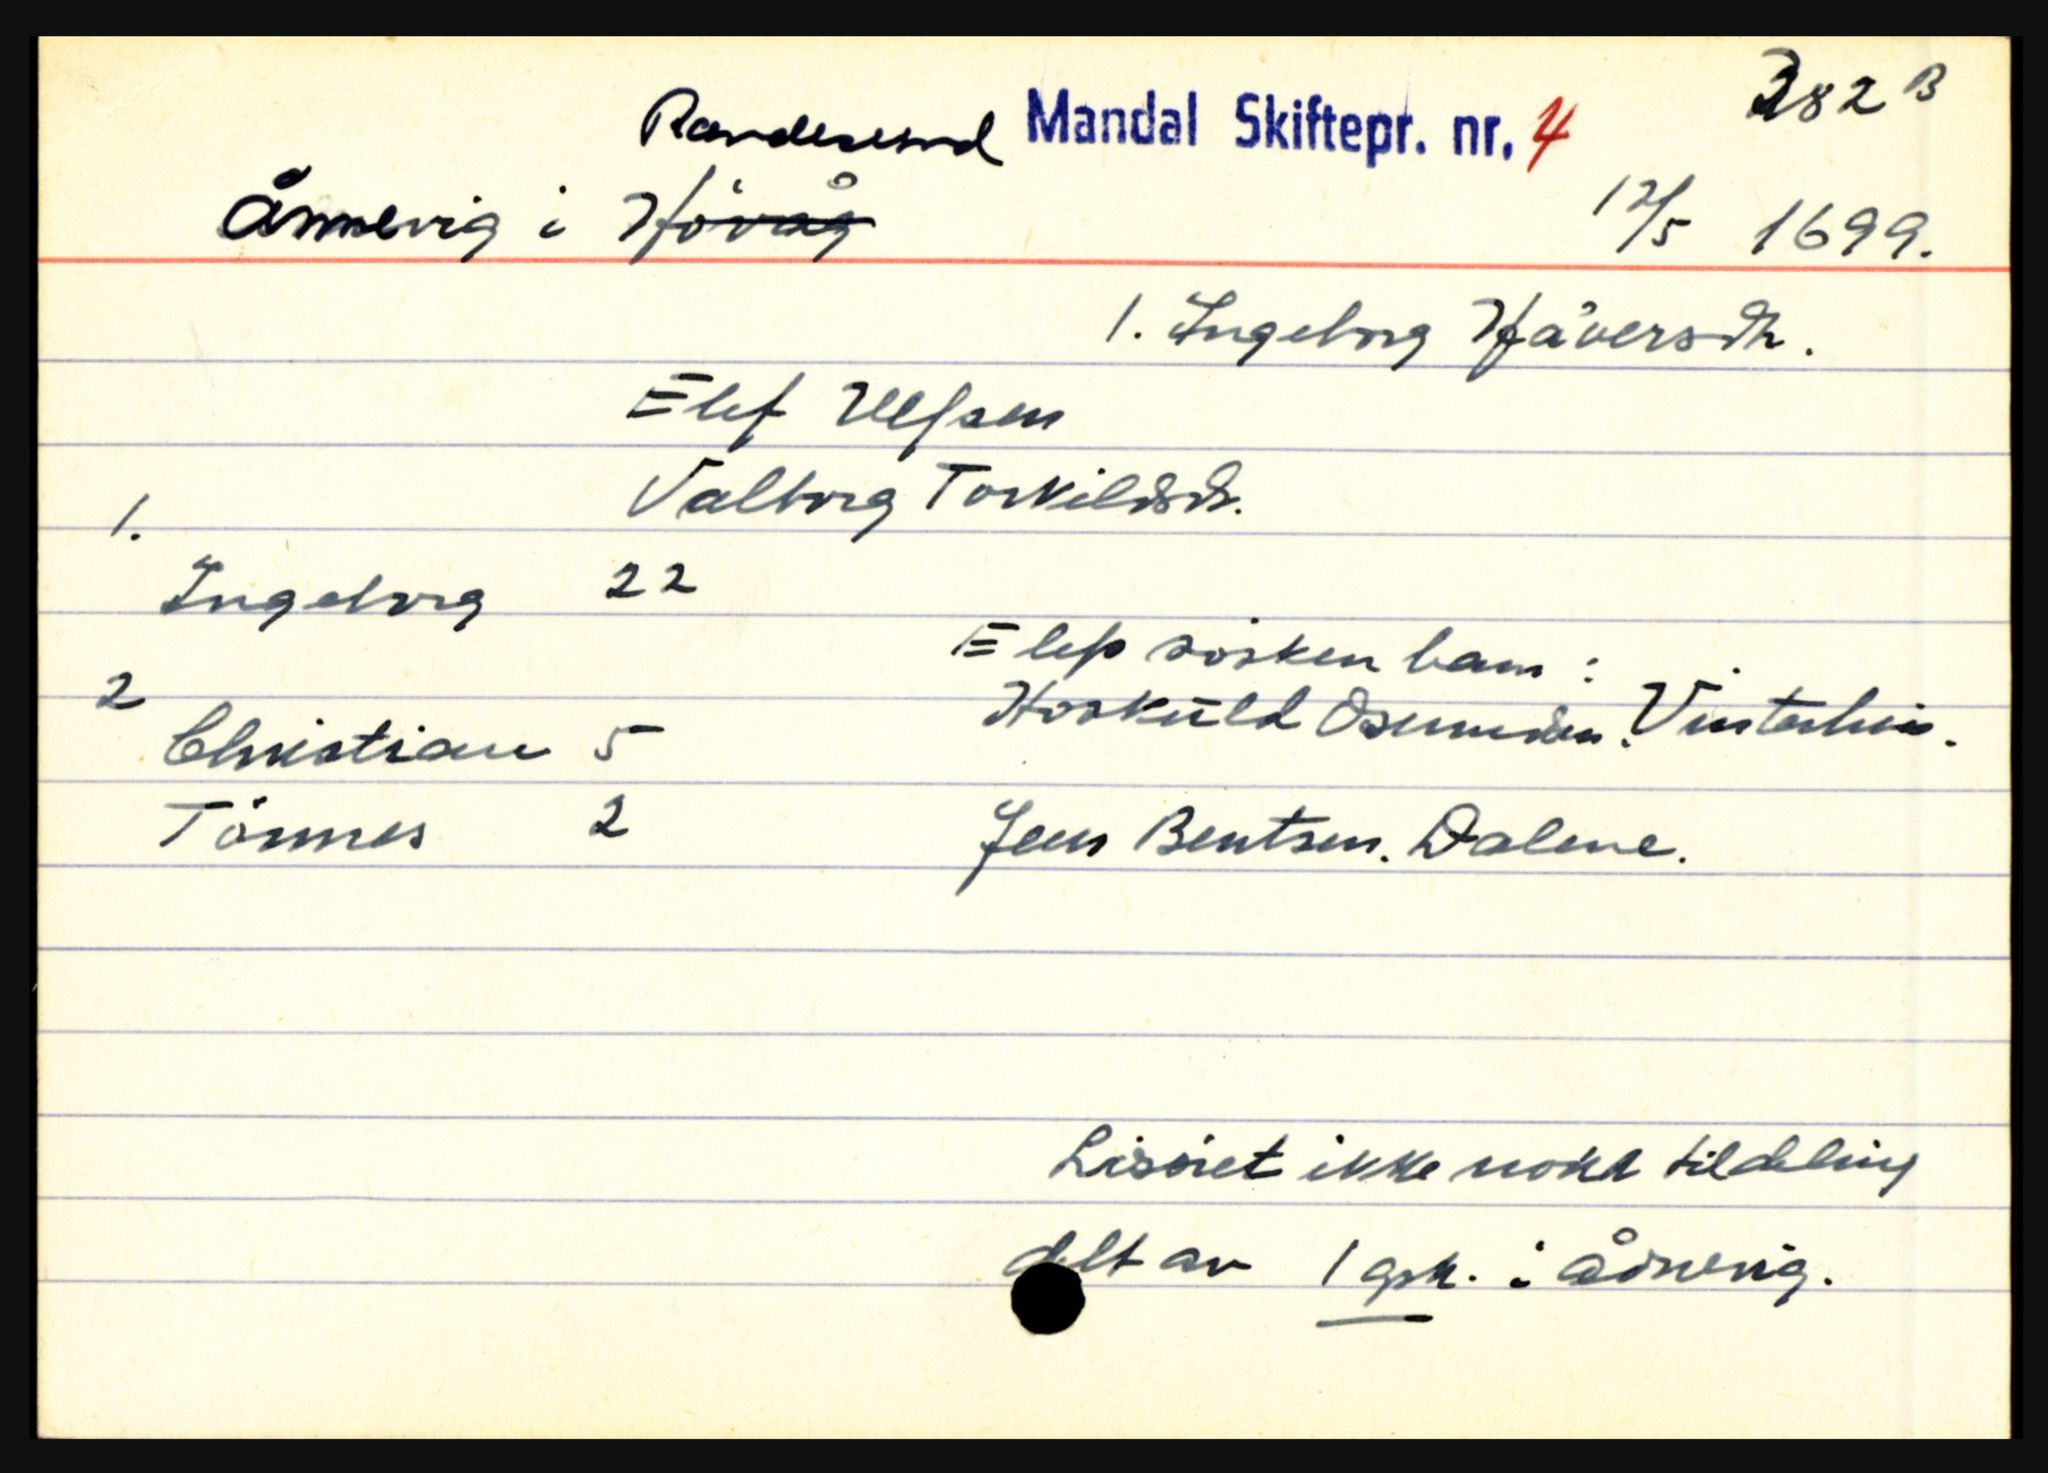 382 B
Randesund Mandal Skiftepr. nr. 4
Ånnevig i Hövåg 12/5 1699.
1. Ingeborg Håversdtr.
Elef Ulfsen
Valborg Torkildsdtr.
1.
Ingeborg 22
Elefs söskenbarn:
2
Hoskuld Osmundsen. Vinterhus.
Christian 5
Tönnes 2
Jens Bentsen. Dalene.
Lisöiet ikke nokk tildeling
delt av 1 grk. i Åönevig.